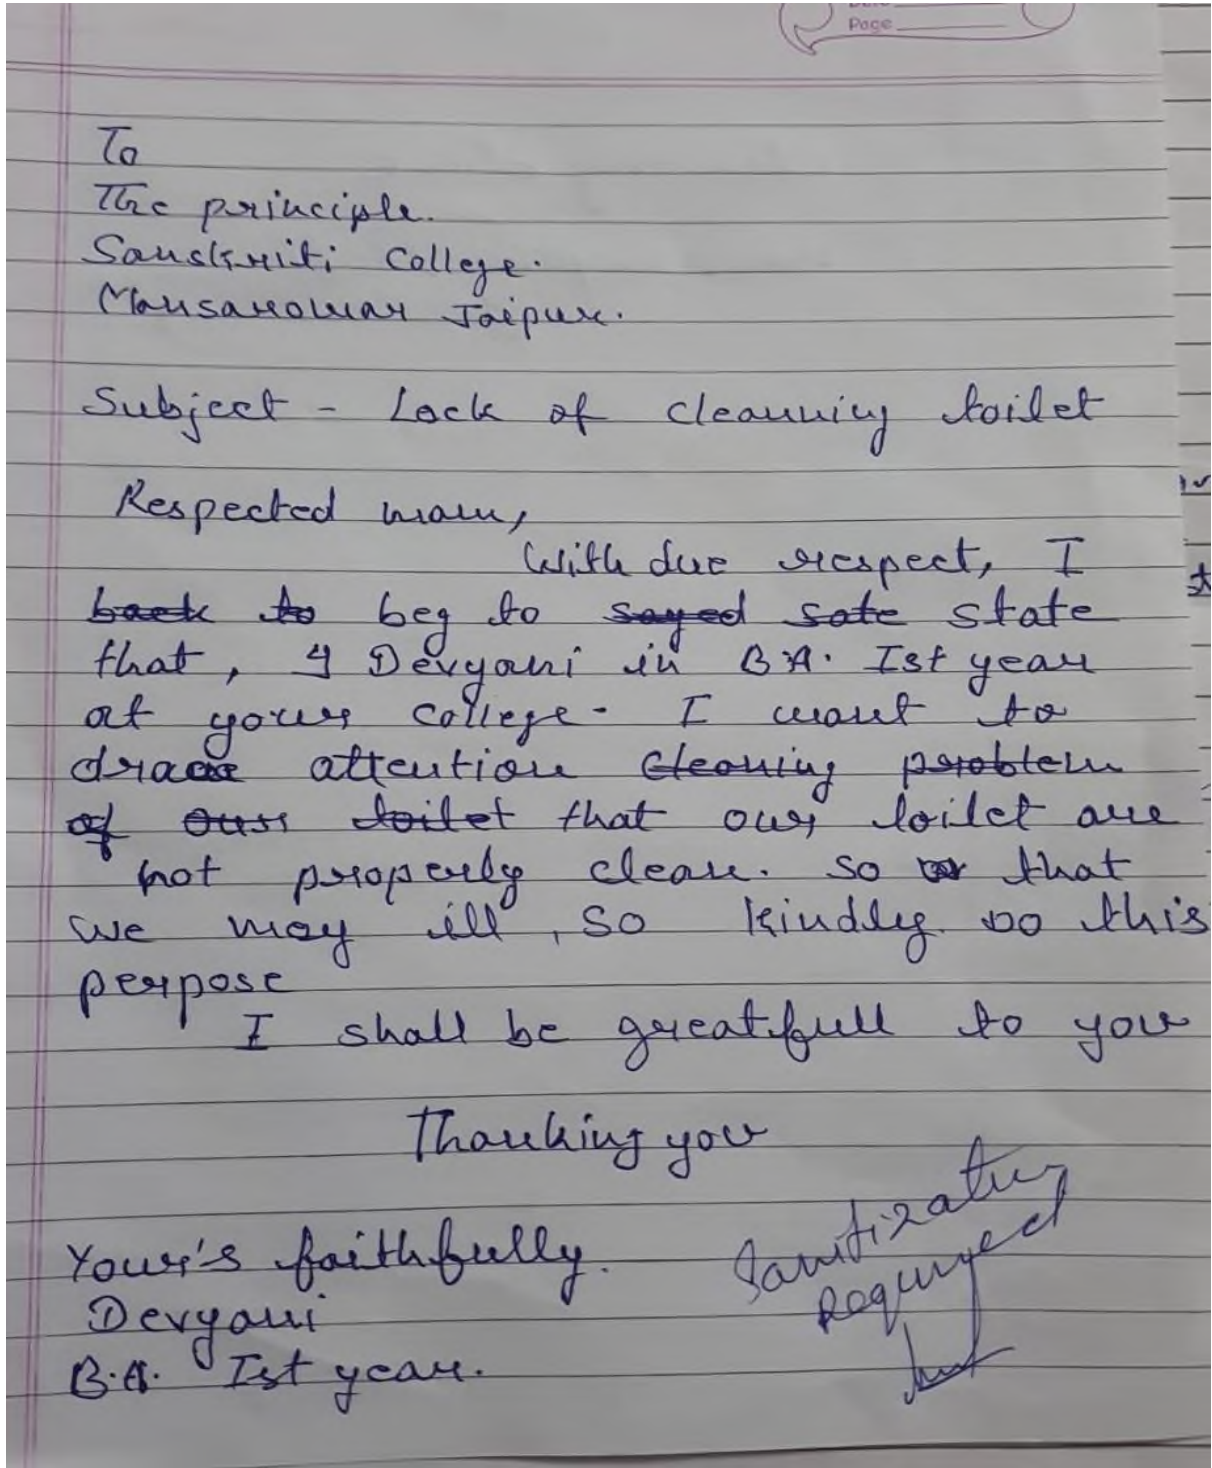 Page
To
The principle.
Sanskriti College.
Mansarowar Jaipur.
Subject - Lack of cleanning toilet
Respected mam,
With due respect, I
back to beg to sayed sate state
that, I Devyani in B.A. Ist year
at your college. I want to
draw attention cleaning problem
of our toilet that our toilet are
not properly clean. so that
we may ill, so kindly do this
perpose
I shall be greatfull to you
Thanking you
Your's faithfully.
Devyani
B.A. Ist year.
Sanitization
Required